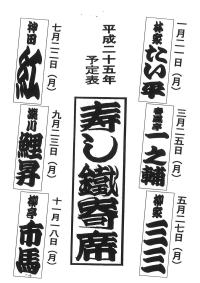 一月二一日（月）
林家
たい平
三月二五日（月）
春風亭
一之輔
五月二七日（月）
柳家
三三
平成二十五年
予定表
寿し鐵寄席
七月二二日（月）
神田
紅
九月二三日（月）
瀧川
鯉昇
十一月一八日（月）
柳亭
市馬